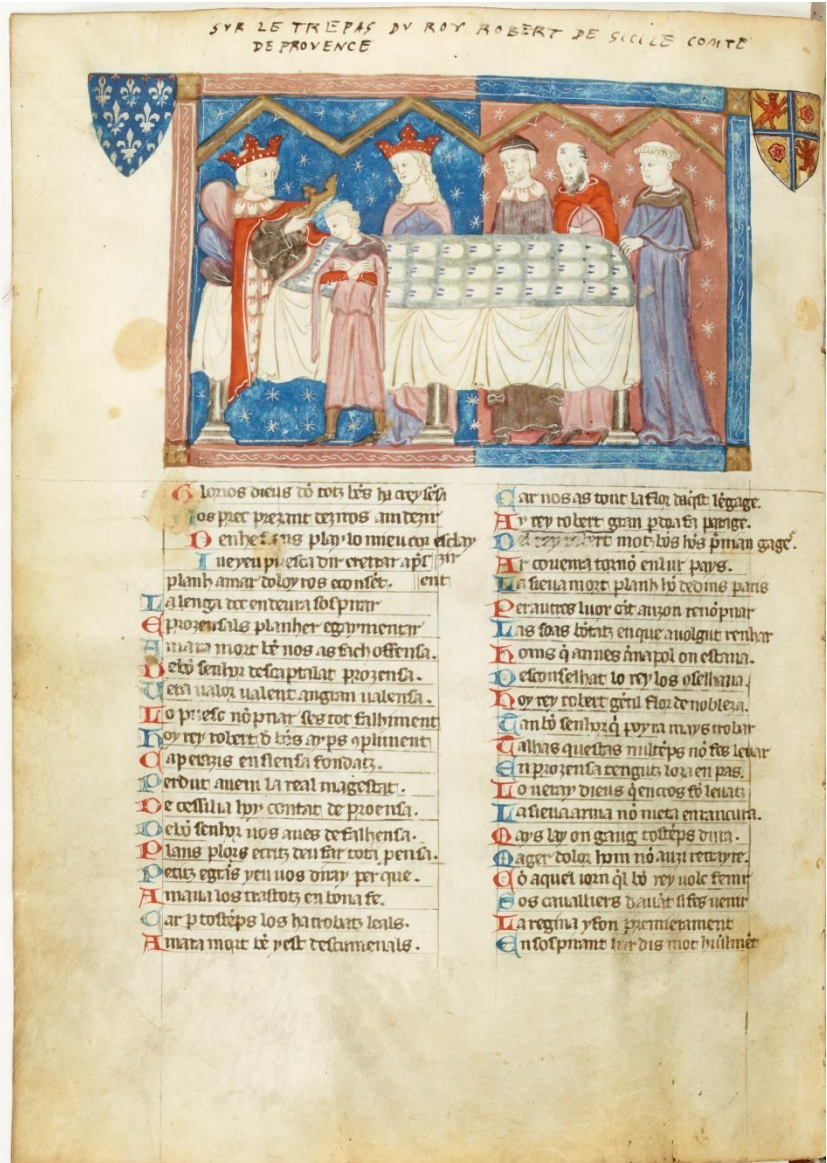 SVR LE TREPAS DV ROY ROBERT DE SICILE COMTE
DE PROVENCE
Glorios dieus dō totz bēs ha
vos prec
Denhe
planh amar doloyros
La lenga doc en deura sospirar
E prozensals planher e gaymentar
Amara mort bē nos as fach offensa.
De bō senhor descaptalat prozensa.
Vera valor valent an gran valensa.
Lo puesc nō pnar ses tot falhiment
Hoy rey robert d bēs
Caperazis en siensa fondatz.
Perdut avem la real magestat.
De cessilia hoy contat de proensa.
De bō senhor nos aves de falhensa.
Plans plors e critz deu far tota pensa.
Petitz e grās yeu vos diray per que.
Amava los trastotz en bona fe.
Car p tostēps los ha trobatz leals.
Amara mort bē yest descumenals.
Car nos as tout la flor daqst lēgage.
Ay rey robert gran pdoa fa parage.
Del rey robert mot bōs hōs gage.
Ar covenra tornō en lur pays.
La sieva mort planh hō dedins paris
Per autres luoc ōt auzon
Las soas bōtatz en que a volgut renhar
Homs q annes ē napol on estava.
Desconselhat lo rey los cōselhava.
Hoy rey robert gētil flor de nobleza.
Tan bō senhor q poyra mays trobar
Talhas questas nul tēps nō fes levar
En prozensa tengutz lora en pas.
Lo veray dieus q en cros fō levatz
La sieva arma nō meta en rancura.
Mays lay on gaug tostēps dura.
Mager dolor hom nō auzi retrayre.
Cō aquel iorn ql bō rey volc fenir
Sos cavalliers davāt si fes venir
La regina yson premierament
En sospirant lur dis mot hūilmēt